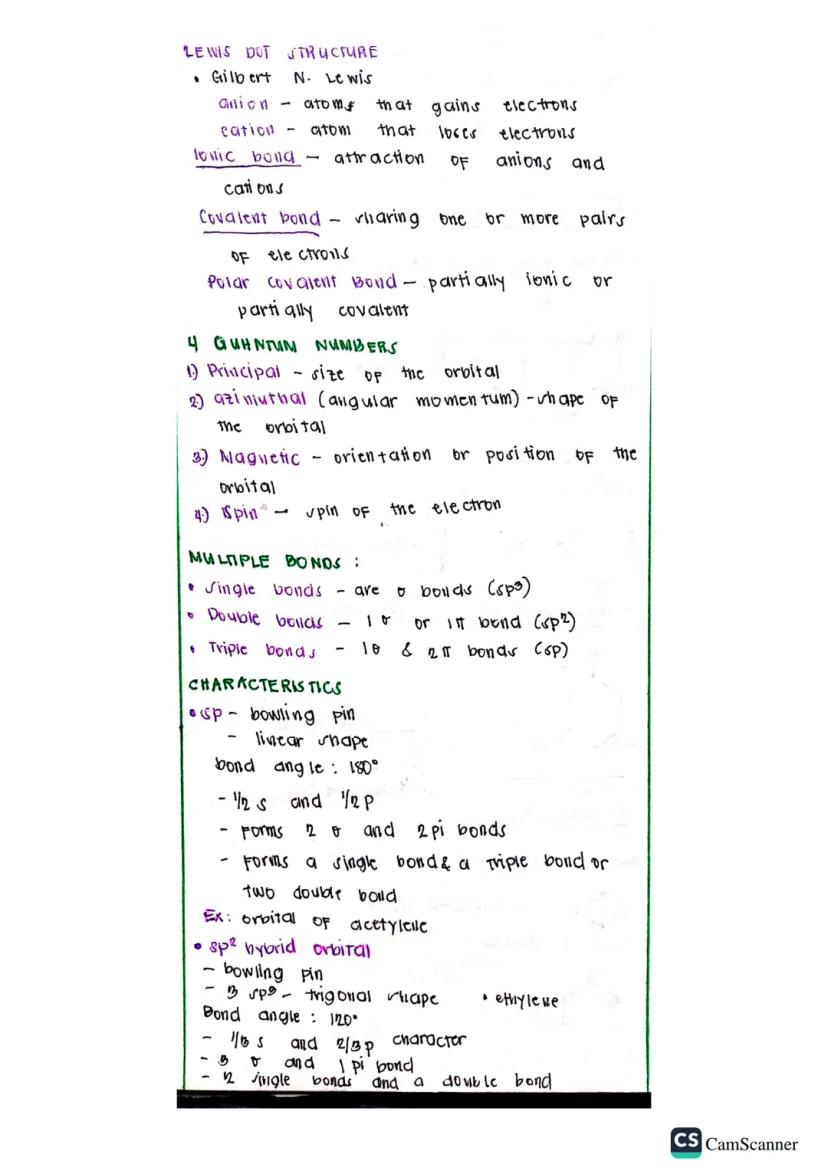 LEWIS DOT STRUCTURE
• Gilbert N. Lewis
anion - atoms that gains electrons
cation - atom that loses electrons
Ionic bond - attraction of anions and
cations
Covalent bond - sharing one or more pairs
of electrons
Polar covalent Bond - partially ionic or
partially covalent
4 QUANTUM NUMBERS
1.) Principal - size of the orbital
2.) azimuthal (angular momentum) - shape of
the orbital
3.) Magnetic - orientation or position of the
orbital
4.) Spin - spin of the electron
MULTIPLE BONDS :
• Single bonds - are σ bonds (sp³)
• Double bonds - 1 σ or 1π bond (sp²)
• Triple bonds - 1σ & 2π bonds (sp)
CHARACTERISTICS
• sp - bowling pin
- linear shape
bond angle : 180°
- 1/2 s and 1/2 p
- Forms 2 σ and 2 pi bonds
- Forms a single bond & a Triple bond or
two double bond
Ex: orbital of acetylene
• sp² hybrid orbital
- bowling pin
- 3 sp³ - trigonal shape • ethylene
Bond angle : 120°
- 1/3 s and 2/3 p character
- 3 σ and 1 pi bond
- 2 single bonds and a double bond
CS CamScanner